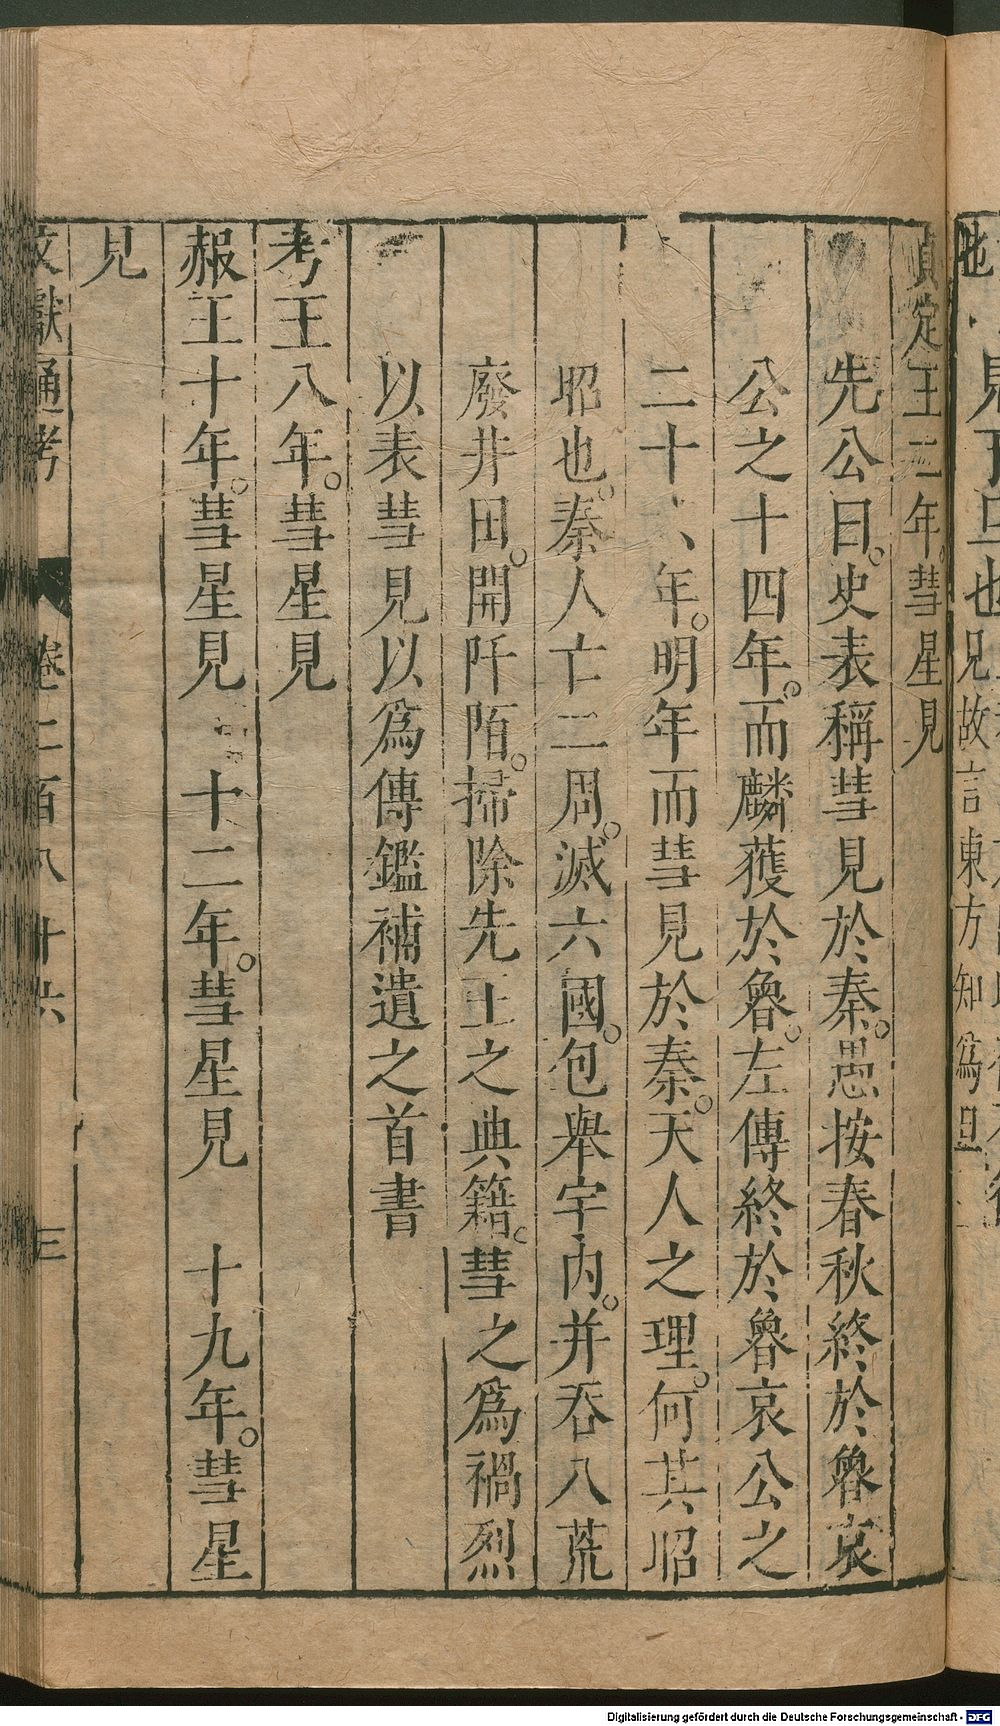 貞定王二年。彗星見
先公曰。史表稱彗見於秦。愚按春秋終於魯哀
公之十四年。而麟獲於魯。左傳終於魯哀公之
二十六年。明年而彗見於秦。天人之理。何其昭
昭也。秦人亡二周。滅六國。包舉宇內。并吞八荒
廢井田。開阡陌。掃除先王之典籍。彗之為禍烈
以表彗見以為傳鑑補遺之首書
考王八年。彗星見
赧王十年。彗星見 十二年。彗星見 十九年。彗星
見
文獻通考 卷二百八十六 三
Digitalisierung gefördert durch die Deutsche Forschungsgemeinschaft - DFG